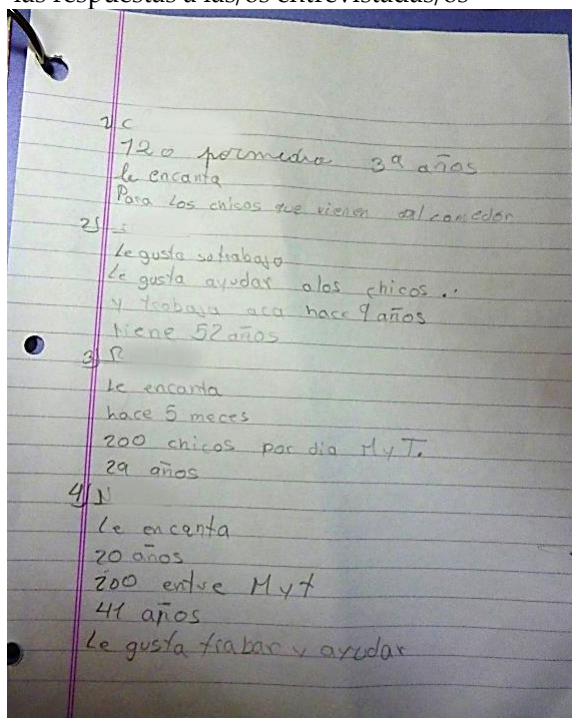 las respuestas a las/os entrevistadas/os
1) C
120 pormedia 3ª años
le encanta
Para Los chicos que vienen al comedor
2)
Le gusta so trabajo
Le gusta ayudar alos chicos.
y trabaja aca hace 9 años
tiene 52 años
3) R
Le encanta
hace 5 meces
200 chicos por dia M y T.
29 años
4) N
Le encanta
20 años
200 entre M y t
41 años
Le gusta trabar y ayudar